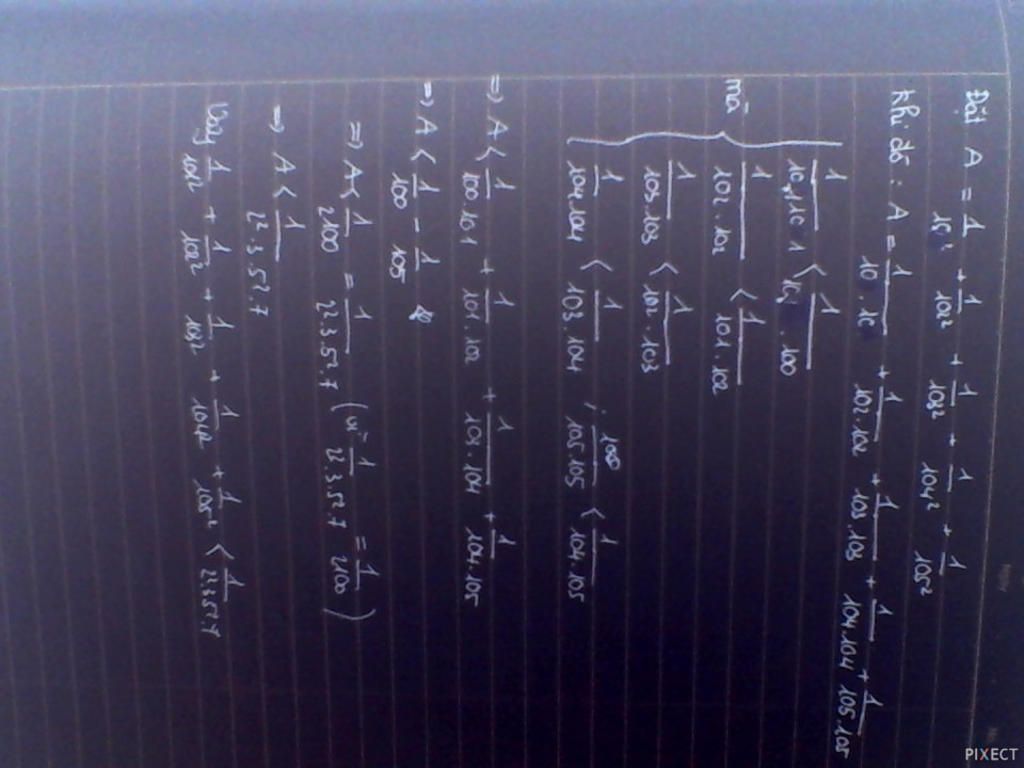 Đặt A = 1/10² + 1/102² + 1/103² + 1/104² + 1/105²
Khi đó : A = 1/10.10 + 1/102.102 + 1/103.103 + 1/104.104 + 1/105.105
mà { 1/101.101 < 1/101.100
1/102.102 < 1/101.102
1/103.103 < 1/102.103
1/104.104 < 1/103.104 ; 1/105.105 < 1/104.105
=> A < 1/100.101 + 1/101.102 + 1/103.104 + 1/104.105
=> A < 1/100 - 1/105
=> A < 1/2100 = 1/2².3.5².7 (vì 1/2².3.5².7 = 1/2100)
=> A < 1/2².3.5².7
Vậy 1/101² + 1/102² + 1/103² + 1/104² + 1/105² < 1/2².3.5².7
PIXECT